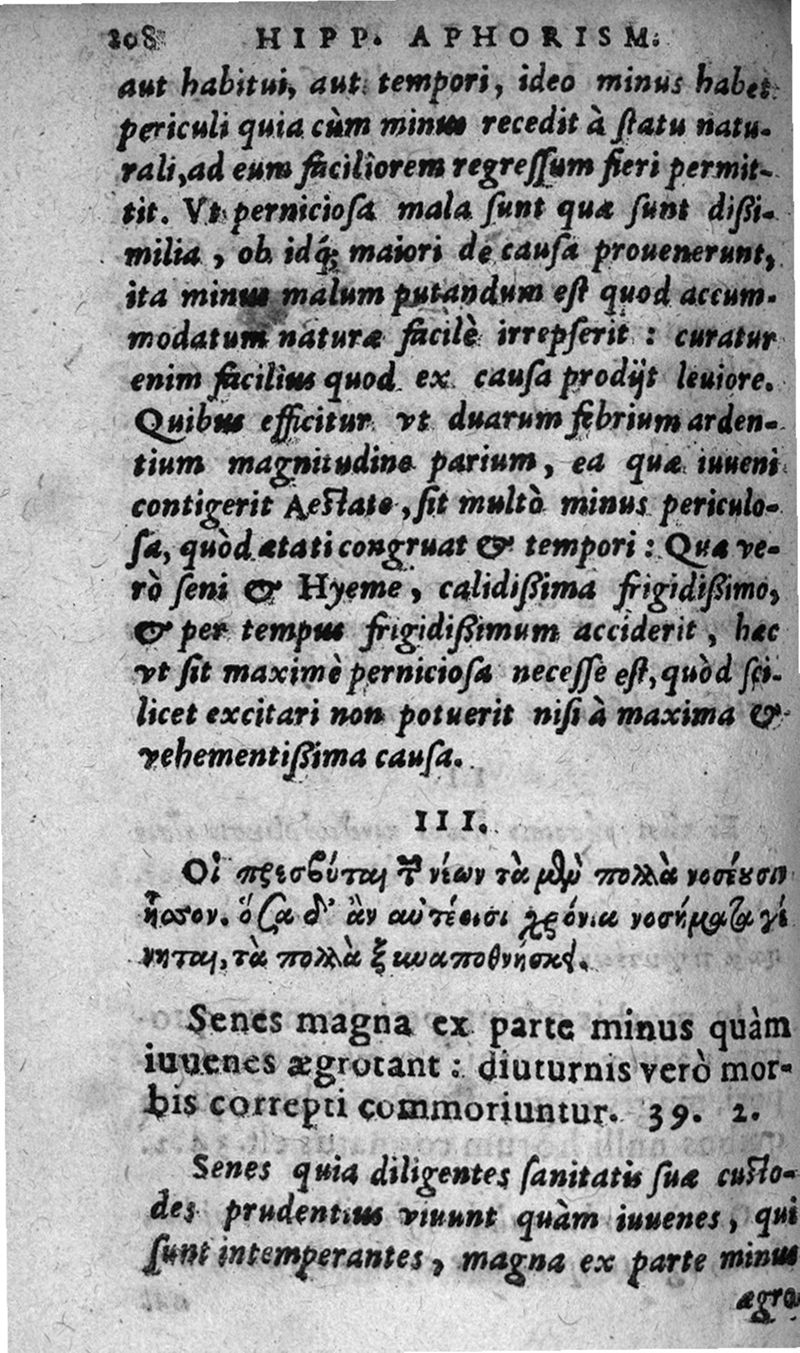 208 HIPP. APHORISM.
aut habitui, aut tempori, ideo minus habet
periculi quia cùm minus recedit à ſtatu natu-
rali, ad eum faciliorem regreſſum fieri permit-
tit. Vt pernicioſa mala ſunt quæ ſunt dißi-
milia, ob idq́; maiori de cauſa prouenerunt,
ita minus malum putandum eſt quod accum-
modatum naturæ facilè irrepſerit : curatur
enim facilius quod ex cauſa prodijt leuiore.
Quibus efficitur vt duarum febrium arden-
tium magnitudine parium, ea quæ iuueni
contigerit Aeſtate, ſit multò minus periculo-
ſa, quòd ætati congruat & tempori : Quæ ve-
rò ſeni & Hyeme, calidißima frigidißimo,
& per tempus frigidißimum acciderit, hæc
vt ſit maximè pernicioſa neceſſe eſt, quòd ſci-
licet excitari non potuerit niſi à maxima &
vehementißima cauſa.
III.
Οἱ πρεσβύται τῶν νέων τὰ μὲν πολλὰ νοσέουσιν
ἧσσον. ὅσα δ' ἂν αὐτέοισι χρόνια νοσήματα γί
νηται, τὰ πολλὰ ξυναποθνήσκει.
Senes magna ex parte minus quàm
iuuenes ægrotant : diuturnis verò mor-
bis correpti commoriuntur. 39. 2.
Senes quia diligentes ſanitatis ſuæ cuſto-
des prudentius viuunt quàm iuuenes, qui
ſunt intemperantes, magna ex parte minus
ægro